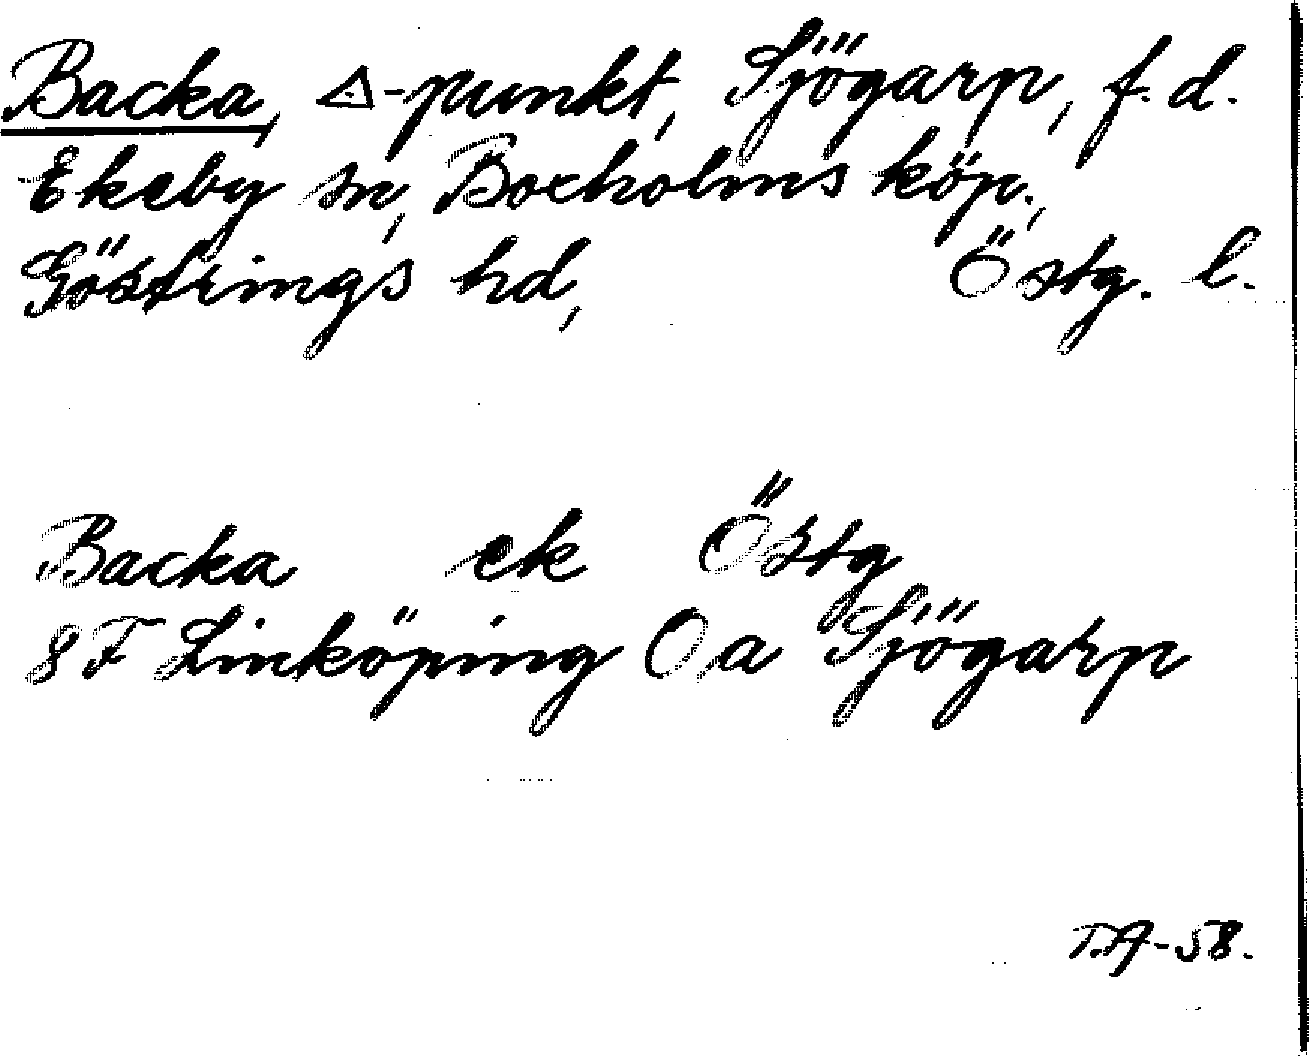 Backa, △-punkt, Sjögarp, f.d.
Ekeby sn, Boxholms köp.,
Göstrings hd, Östg. l.
Backa ek Östg
8F Linköping Oa Sjögarp
T.A-58.